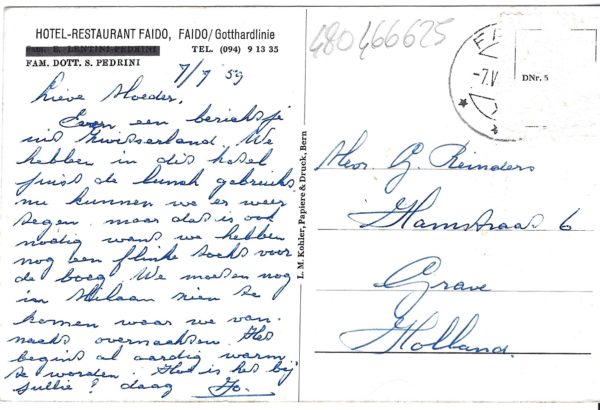 HOTEL-RESTAURANT FAIDO, FAIDO/Gotthardlinie
Fam. E. LENTINI-PEDRINI TEL. (094) 9 13 35
FAM. DOTT. S. PEDRINI
7/7 59
Lieve Moeder,
Even een berichtje
uit Zwitserland. We
hebben in dit hotel
juist de lunch gebruikt
nu kunnen we er weer
tegen. maar dat is ook
nodig want we hebben
nog een flinke tocht voor
de boeg. We moeten nog
in Milaan zien te
komen waar we van
nacht overnachten. Het
begint al aardig warm
te worden. Hoe is het bij
jullie? daag Jo.
480466625
-7.V
DNr. 5
L. M. Kohler, Papiere & Druck, Bern
G. Reinders
Hamstraat 6
Grave
Holland.